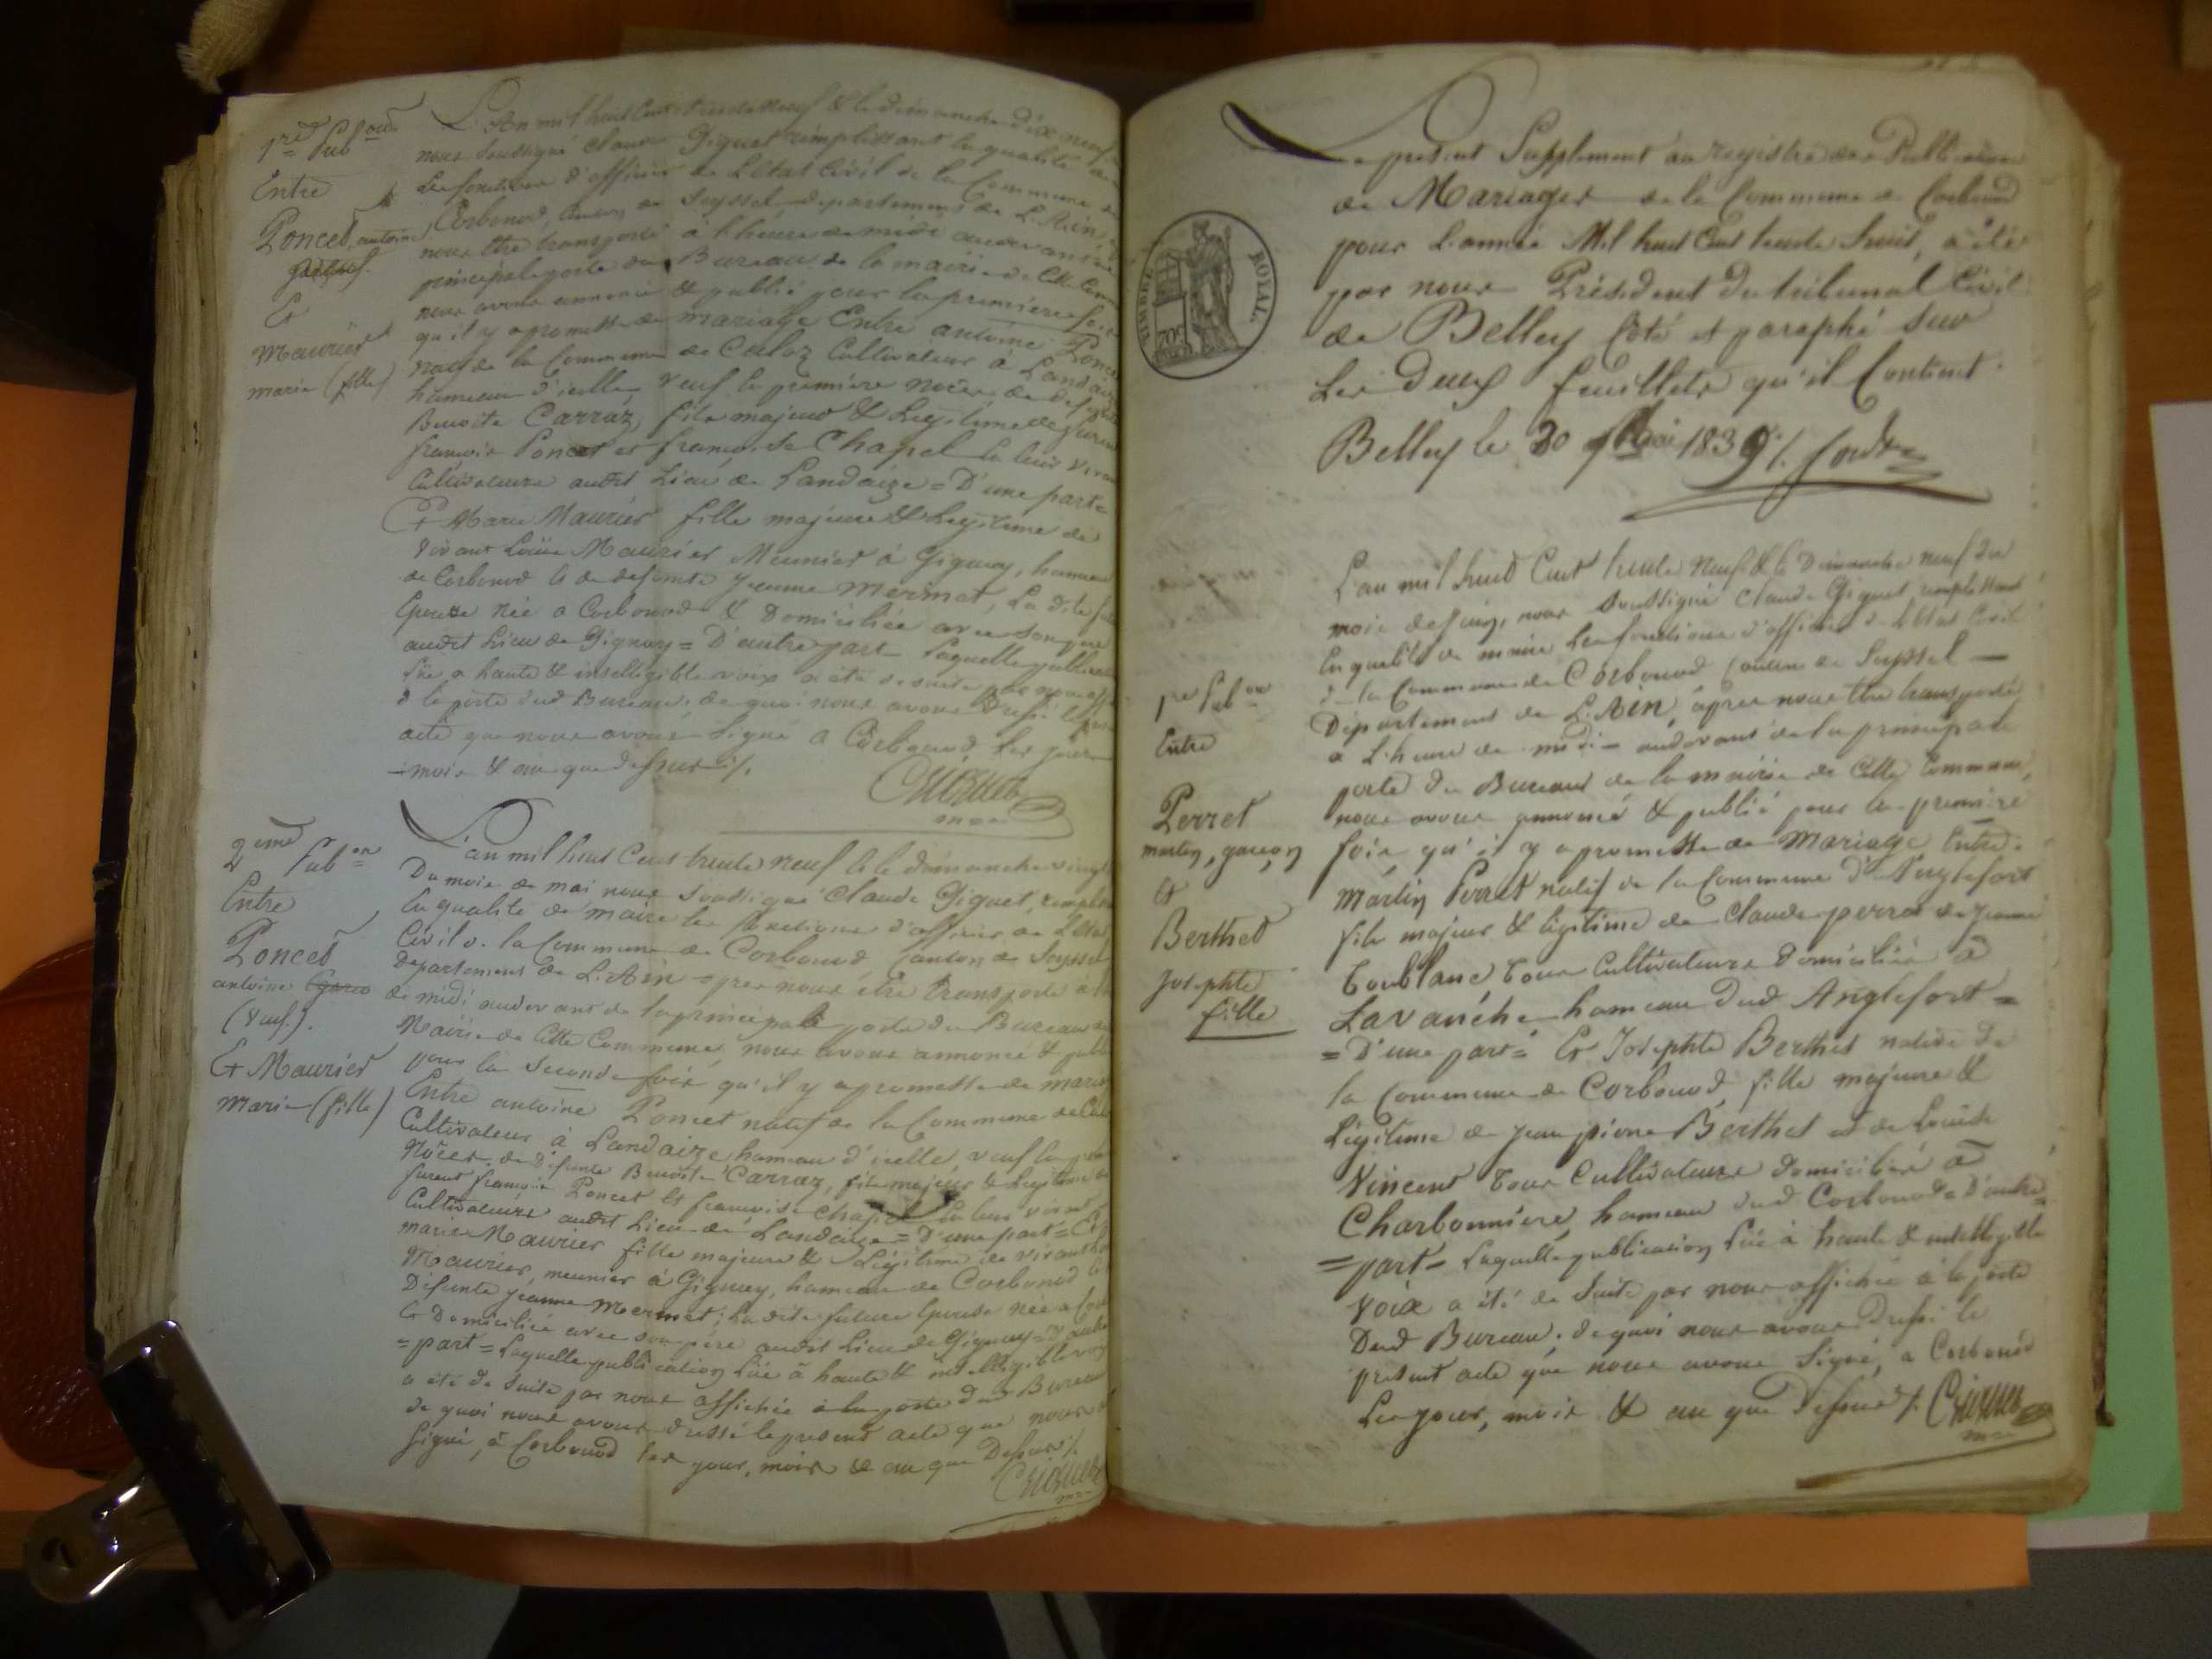 1re Pubon
Entre
Poncet antoine
Et
Maurier
marie (fille)
L'An mil huit Cent trente neuf & le dimanche dix neuf
nous soussigné claude Giguet remplissant la qualité de
Les fonctions d'officier de L'Etat Civil de la Commune de
Corbonod, Canton de Seyssel departement de L'Ain,
nous être transporté à l'heure de midi audevant de
principale porte du Bureau de la mairie de Cette Com
nous avons annoncé & publié pour la premiere fois
qu'il y a promesse de mariage Entre antoine Poncet
natif de la Commune de Culoz Cultivateur à Landaize
hameau d'icelle, veuf la premiere noces de defunte
Benoite Carraz, fils majeur & Legitime de furent
françois Poncet et françoise Chapel la leur vivant
Cultivateurs audit Lieu de Landaize = D'une part =
Et Marie Maurier fille majeure & Legitime de
vivant Louis Maurier Meunier à Gignuy, hameau
de Corbonod & de defunte Jeanne Mermet, La dite future
Epouse née a Corbonod & Domiciliée avec son père
audit Lieu de Gignuy = D'autre part = Laquelle publication
Lüe a haute & intelligible voix a été de suite par nous affichée
à la porte dud Bureau, de quoi nous avons dressé le present
acte que nous avons signé a Corbonod Les jour
mois & an que dessus ./.
Cgiguet
maire
2eme Pubon
Entre
Poncet
antoine
(veuf).
Et Maurier
marie (fille)
L'an mil huit Cent trente neuf & le dimanche vingt
Du mois de mai nous soussigné Claude Giguet, remplissant
la qualité de maire les fonctions d'officier de L'Etat
Civil de la Commune de Corbonod Canton de Seyssel
Departement de L'Ain après nous être transporté à l'heure
de midi audevant de la principale porte du Bureau de
Mairie de Cette Commune, nous avons annoncé & publié
pour la Seconde fois qu'il y a promesse de mariage
Entre antoine Poncet natif de la Commune de Culoz
Cultivateur à Landaize hameau d'icelle, veuf la premiere
Noces de defunte Benoite Carraz, fils majeur & Legitime de
furent françois Poncet Et françoise Chapel la leur vivant
Cultivateurs audit Lieu de Landaize = D'une part = Et
marie Maurier fille majeure & Légitime de vivant Louis
Maurier, meunier à Gignuy, hameau de Corbonod &
Défunte Jeanne Mermet; La dite future Epouse née a Corbonod
& Domiciliée avec son père audit Lieu de Gignuy = D'autre
= part = Laquelle publication Lüe à haute & intelligible voix
a été de suite par nous affichée à la porte dud Bureau
de quoi nous avons dressé le present acte que nous avons
signé, à Corbonod Les jour, mois & an que Dessus ./.
Cgiguet
maire
Le present Supplement au registre des Publications
de Mariages de la Commune de Corbonod
pour L'année Mil huit Cent trente huit, a été
par nous Président du tribunal Civil
de Belley Coté et paraphé sur
Les Deux feuillets qu'il Contient.
Belley le 30 1839 ./.
TIMBRE ROYAL.
70c
1re Pubon
Entre
Perret
martin, garçon
&
Berthet
Josephte
fille
L'an mil huit Cent trente Neuf & le Dimanche neuf du
mois de juin, nous soussigné Claude Giguet remplissant
En qualité de maire Les fonctions d'officier de L'Etat Civil
de la Commune de Corbonod Canton de Seyssel —
Département de L'Ain, après nous être transporté
a L'heure de midi audevant de la principale
porte du Bureau de la mairie de Cette Commune,
nous avons annoncé & publié pour la première
fois qu'il y a promesse de Mariage Entre
Martin Perret natif de la Commune d'Anglefort
fils majeur & légitime de Claude perret de Jeanne
Toublanc, tous Cultivateurs domiciliés à
Lavanche hameau dud Anglefort =
= D'une part = Et Josephte Berthet native de
la Commune de Corbonod, fille majeure &
Légitime de Jean pierre Berthet et de Louise
Vincent tous Cultivateurs domiciliés à
Charbonniere, hameau dud Corbonod = D'autre =
= part = Laquelle publication Lüe à haute & intelligible
voix a été de suite par nous affichée à la porte
Dud Bureau; de quoi nous avons dressé le
present acte que nous avons Signé, a Corbonod
Les jour, mois & an que Dessus ./. Cgiguet
maire